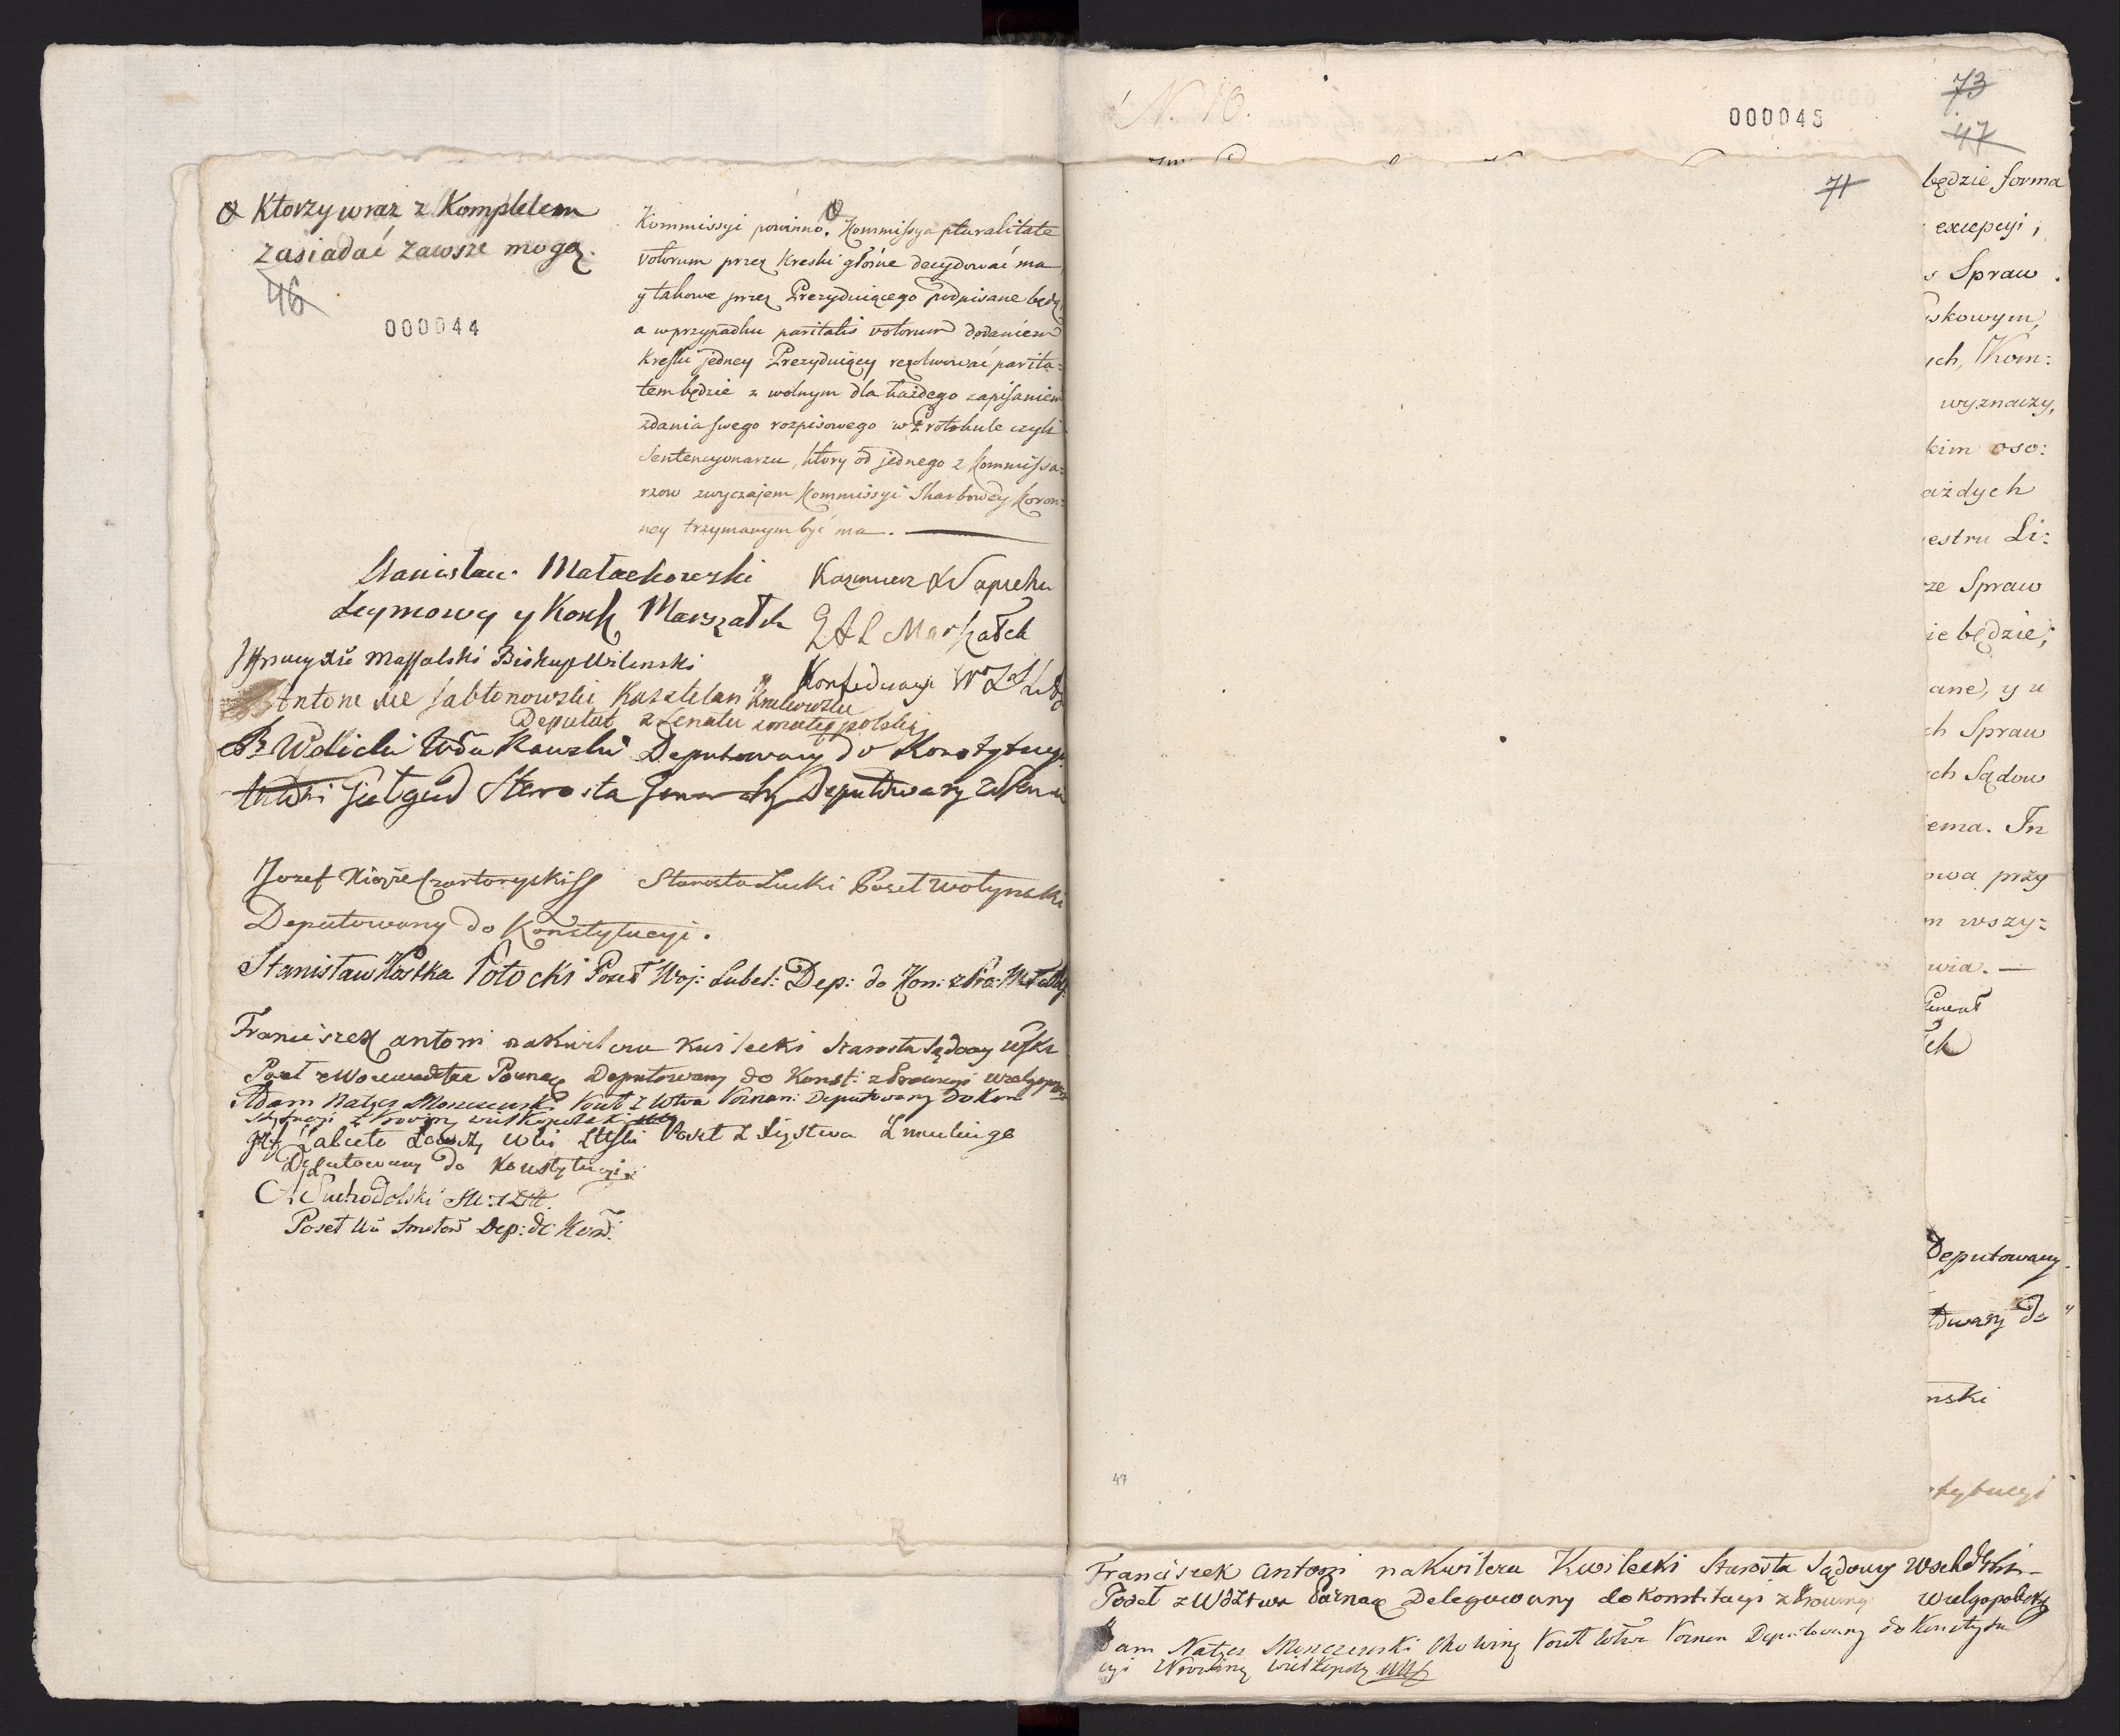 Ktorzy wraz z Kompletem
zasiadać zawsze mogą.
46
000044
Kommissyi powinno. Kommissya pluralitate
votorum przez Kreski głośne decydować ma
y takowe przez Prezyduiącego podpisane będą
a w przypadku paritatis votorum dodaniem
Kreski jedney Prezyduiący rezolwować parita=
tem będzie z wolnym dla każdego zapisaniem
zdania swego rozpisowego w Protokule czyli
Sentencyonarzu, ktory od jednego z Kommissa=
rzow zwyczajem Kommissyi Skarbowey Koron=
ney trzymanym być ma.
Stanisław Małachowski
Seymowy y Konf. Marszałek
Kazimierz X Sapieha
GAL Marszałek
Konfederacyi
Massalski Biskup Wilenski
Antoni Xże Jabłonowski Kasztelan Krakowski
Deputat z Senatu z małey polski
Walicki Wda Rawski Deputowany do Konstytucyi
Giełgud Starosta Deputowany
Jozef Xiąże Czartoryski Starosta Łucki Poseł Wołynski
Deputowany do Konstytucyi.
Stanisław Kostka Potocki Poseł Woj: Lubel: Dep: do Kon: z Pro: Małopol:
Franciszek antoni na Kwilczu Kwilecki Starosta Sądowy Wski
Poseł z Wojewodztwa Poznań Deputowany do Konst: z Prowincyi Wielgopol
Adam Nałęcz Moszczenski Poseł z Wtwa Poznan: Deputowany do Kon
stytucyi z Prowincy wielkopolski
Zabiełło Łowczy Wli Litski Poseł z Xięstwa Zmudzkiego
Deputowany do Konstytucyi
A Suchodolski
Poseł Wa Smoleń Dep: do Kons:
N. 10.
000045
73
47
71
będzie forma
excepcyi,
Spraw
skowym,
ych, Kom:
wyznaczy,
kim oso:
ażdych
estru Li:
ze Spraw
ie będzie;
ane, y u
ch Spraw
ch Sądow
ema. In
owa przy
m wszy=
wia.
Deputowany
towany Do
nski
stytucyi
47
Franciszek Antoni na Kwilczu Kwilecki Starosta Sądowy Wschowski
Poseł z Wdztwa Poznań Delegowany do Konstitucyi z Prowincy Wielgopolsky
Adam Nałęcz Moszczenski Poseł Wtwa Poznan Deputowany do Konstytu
cyi Prowincy wielkopolsk